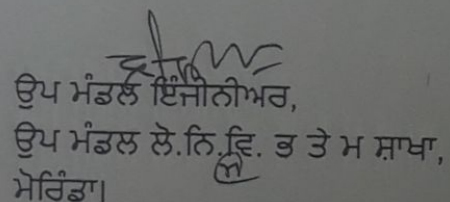 ਉਪ ਮੰਡਲ ਇੰਜੀਨੀਅਰ,
ਉਪ ਮੰਡਲ ਲੋ.ਨਿ.ਵਿ. ਭ ਤੇ ਮ ਸ਼ਾਖਾ,
ਮੋਰਿੰਡਾ।